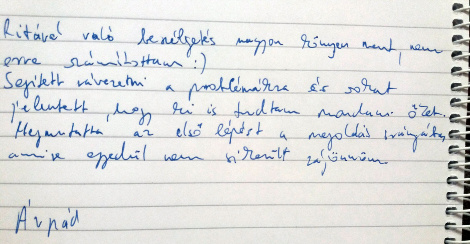 Ritával való beszélgetés nagyon könnyen ment, nem
erre számítottam :)
Segített rávezetni a problémákra és sokat
jelentett, hogy ki is tudtam mondani őket.
Megmutatta az első lépést a megoldás irányába,
amire egyedül nem sikerült rájönnöm
Árpád